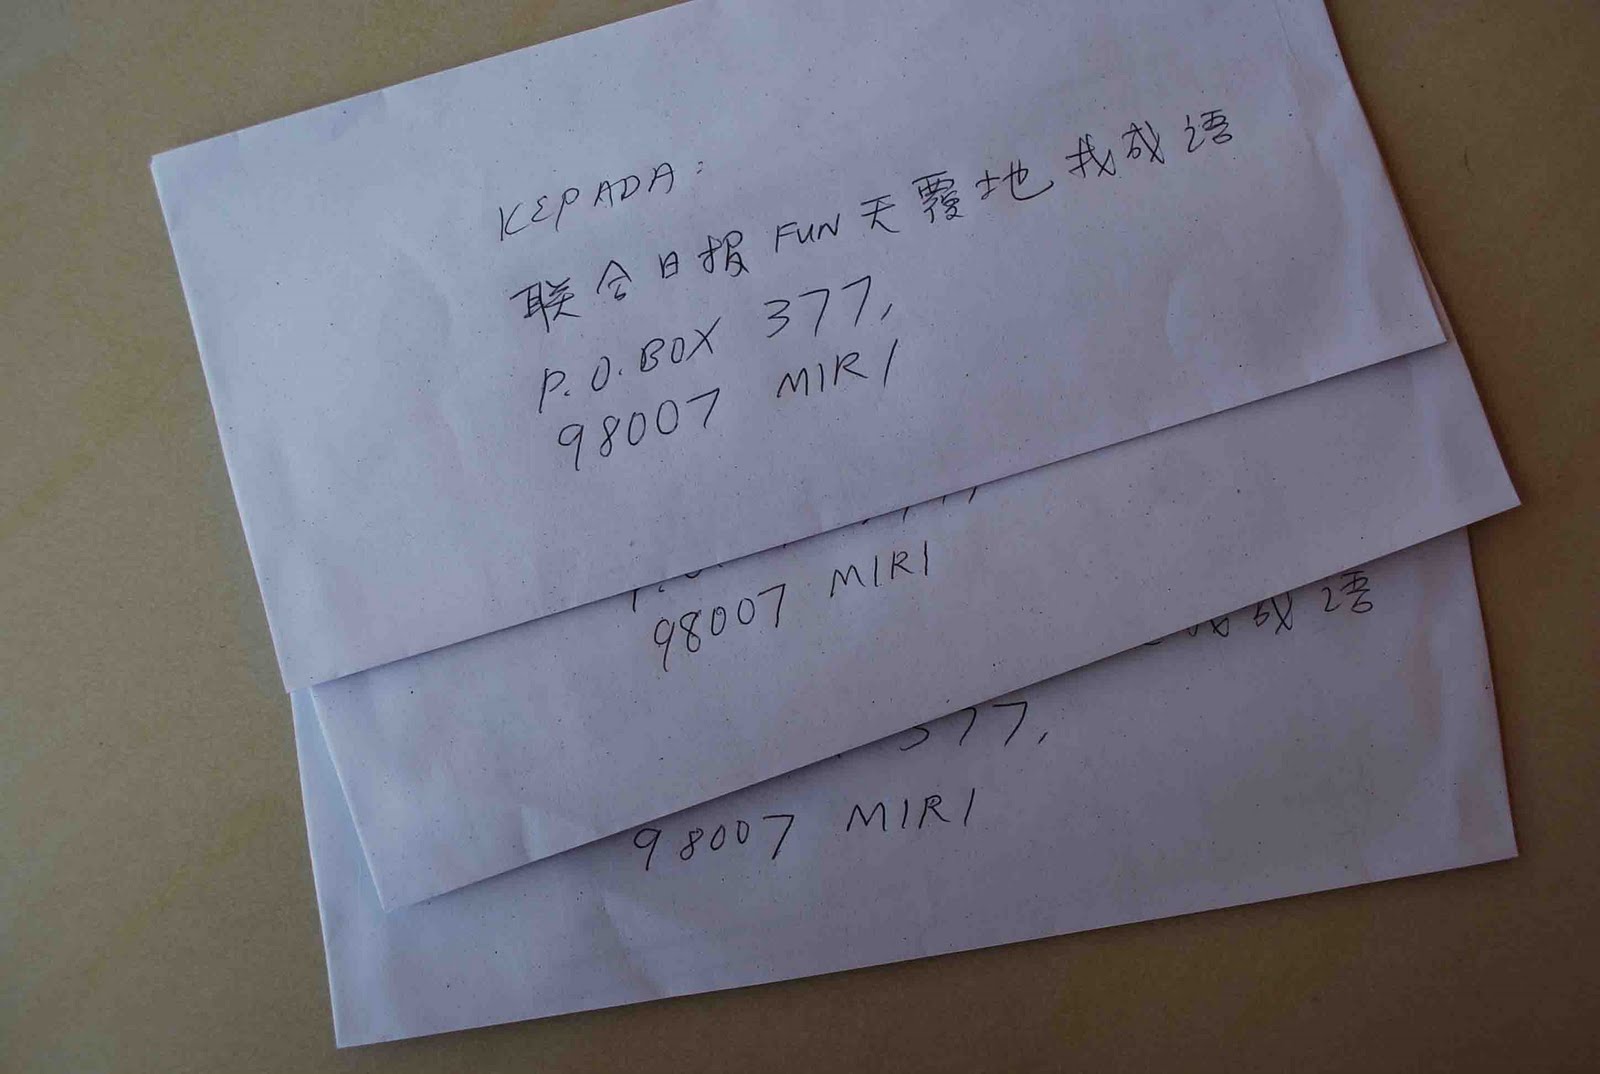 KEPADA:
联合日报 FUN天覆地找成语
P.O.BOX 377,
98007 MIRI
98007 MIRI
成语
377,
98007 MIRI